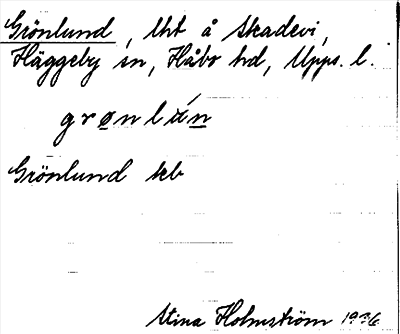 Grönlund, lht å Skadevi,
Häggeby sn, Håbo hd, Upps. l.
grønlún
Grönlund skb
Stina Holmström 1936